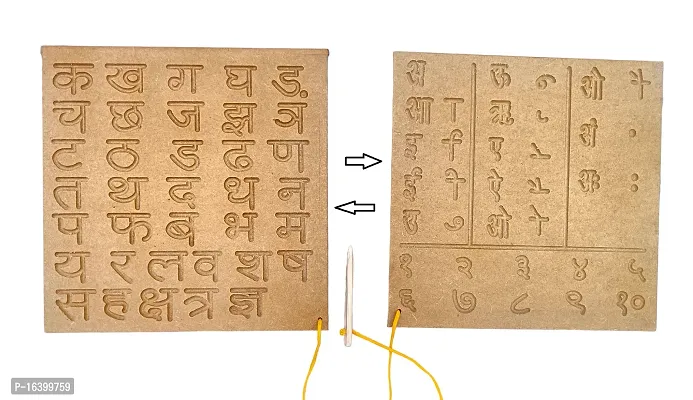 क ख ग घ ड़
च छ ज झ ञ
ट ठ ड ढ ण
त थ द ध न
प फ ब भ म
य र ल व श ष
स ह क्ष त्र ज्ञ
अ
आ ा
इ ि
ई ी
उ ु
ऊ ू
ऋ ृ
ए े
ऐ ै
ओ ो
औ ौ
अं ं
अः ः
१ २ ३ ४ ५
६ ७ ८ ९ १०
P-16399759